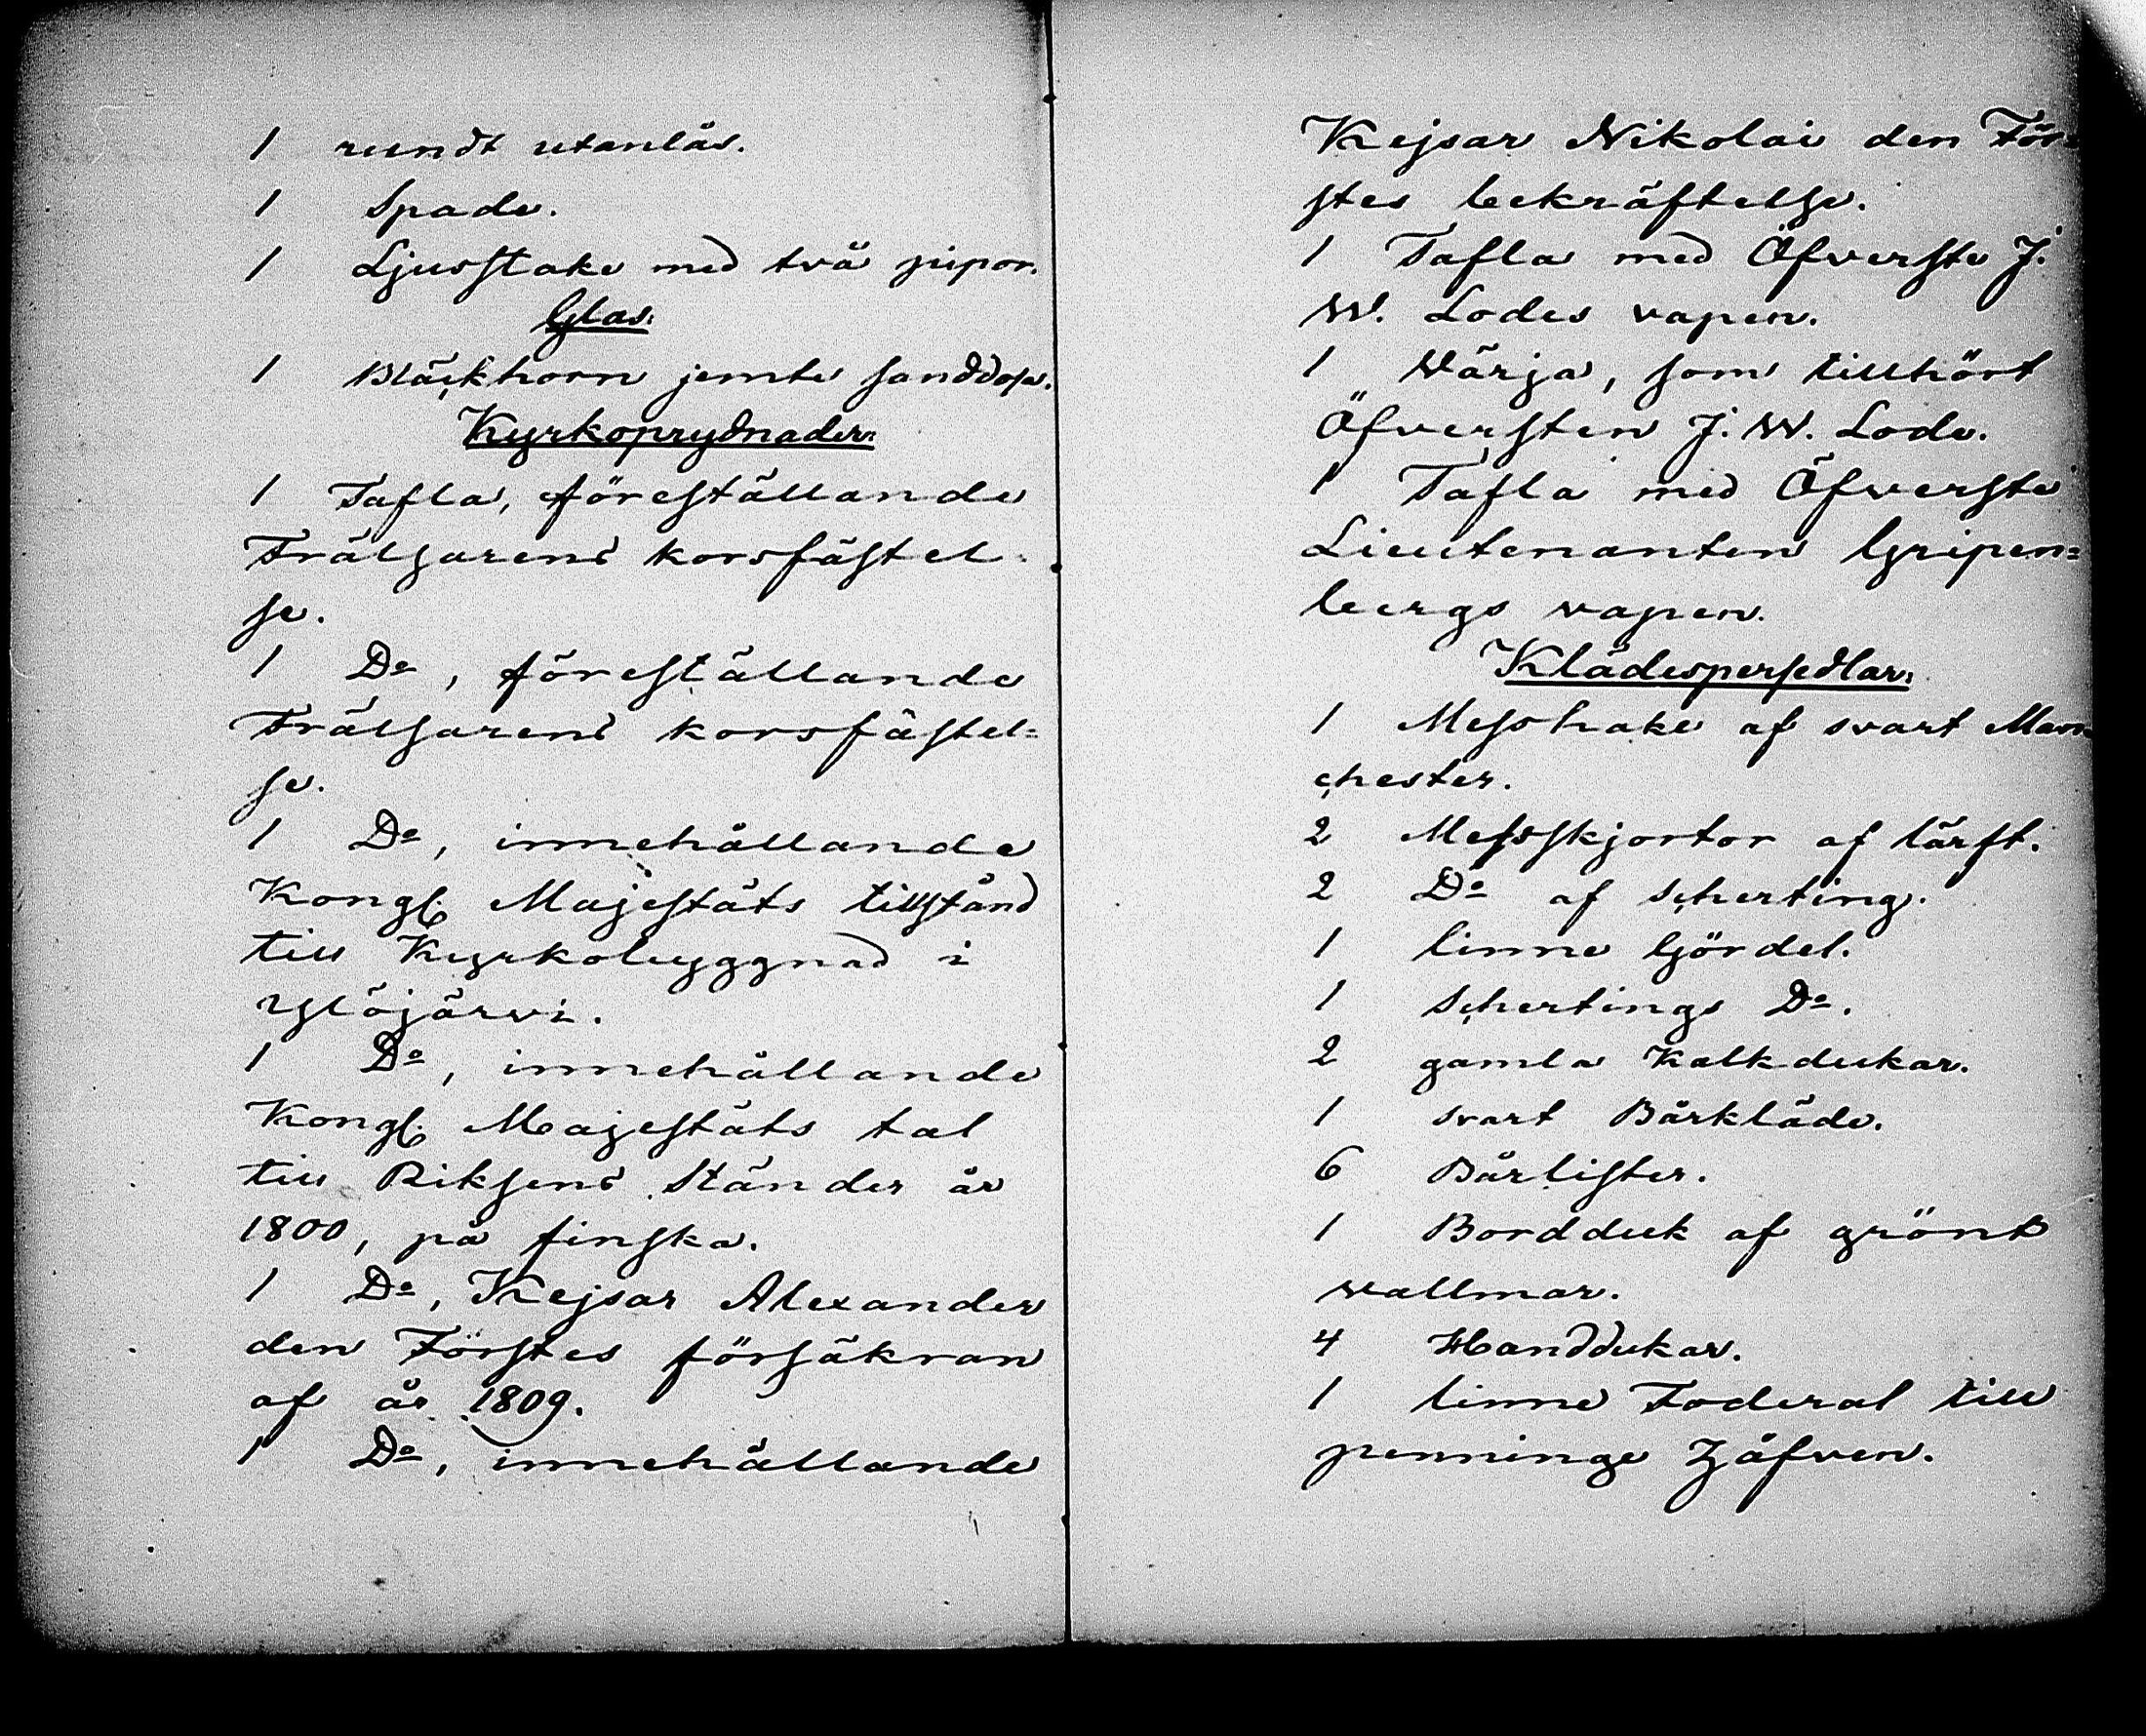 1 rundt utanlås.
1 Spade.
1 Ljusstake med två pipor.
Glas.
1 Bläckhorn jemte sanddosa.
Kyrkoprydnader.
1 Tafla, föreställande
Frälsarens korsfästel-
se.
1 Do, föreställande
Frälsarens korsfästel=
se.
1 Do, innehållande
Kongl. Majestäts tillstånd
till Kyrkobyggnad i
Ylöjärvi.
1 Do, innehållande
Kongl. Majestäts tal
till Riksens Ständer år
1800, på finska.
1 Do, Kejsar Alexander
den Förstes försäkran
af år 1809.
1 Do, innehållande
Kejsar Nikolai den För=
stes bekräftelse.
1 Tafla med Öfverste J.
W. Lodes vapen.
1 Wärja, som tillhört
Öfversten J. W. Lode.
1 Tafla med Öfverste
Lieutenanten Gripen=
bergs vapen.
Klädespersedlar.
1 Messhake af svart Man-
chester.
2 Messskjortor af lärft.
2 Do af scherting.
1 linne Gördel.
1 schertings Do.
2 gamla Kalkdukar.
1 svart Bårkläde.
6 Bårlister.
1 Bordduk af grönt
vallmar.
4 Handdukar.
1 linne Foderal till
penninge Håfven.